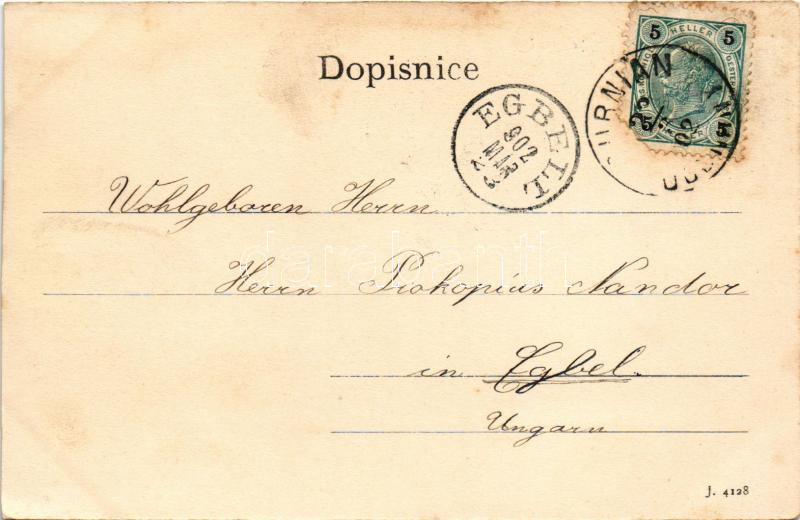 Dopisnice
5 HELLER 5
5 5
EGBELL
902
MÁR
23
Wohlgeboren Herrn
Herrn Prokopius Nandor
in Egbel.
Ungarn
darabanth
J. 4128